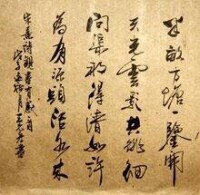 半亩方塘一鑒開
天光雲影共徘徊
問渠那得清如許
為有源頭活水來
朱熹詩觀書有感一首